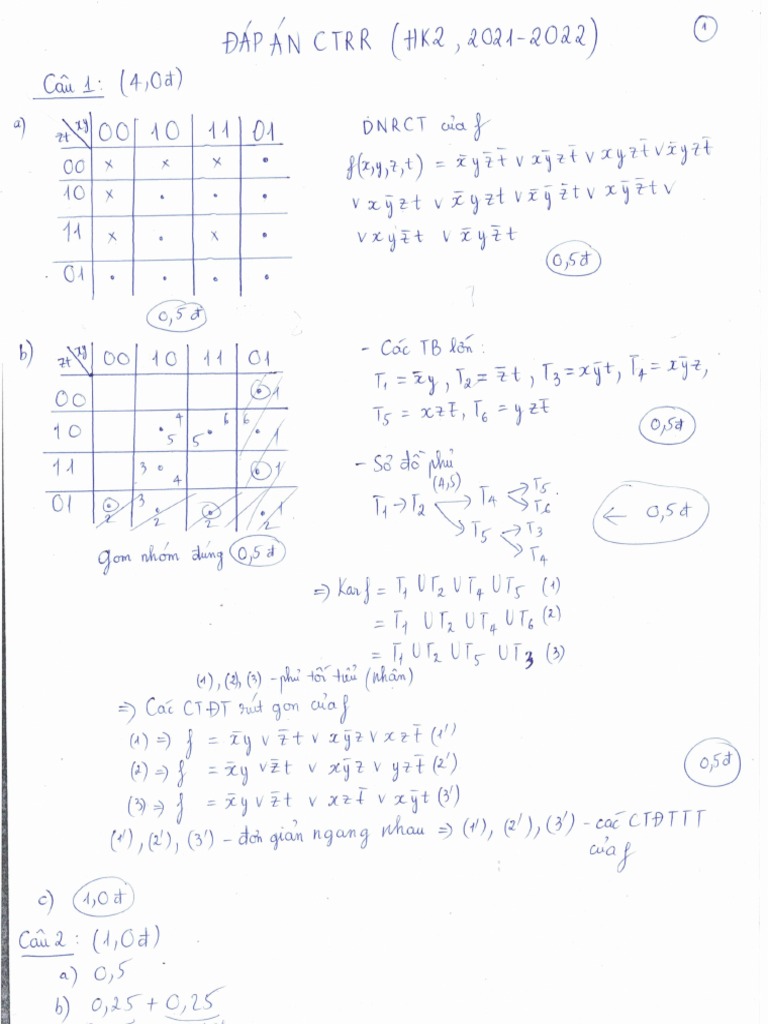 ĐÁP ÁN CTRR (HK2, 2021-2022)
1
Câu 1: (4,0đ)
a)
zt xy 00 10 11 01
00 x x x •
10 x • • •
11 x • x •
01 • • • •
0,5đ
DNRCT của f
f(x,y,z,t) = x̄yz̄t̄ ∨ xȳzt̄ ∨ xyzt̄ ∨ x̄yzt̄
∨ xȳzt ∨ x̄yzt ∨ x̄ȳz̄t ∨ xȳz̄t ∨
∨ xyz̄t ∨ x̄yz̄t
0,5đ
b)
zt xy 00 10 11 01
00 • 1
10 • 4 5 5 • 6 6 • 1
11 3 • 4 • 1
01 • 2 3 • 2 • 2 • 1 2
gom nhóm đúng 0,5đ
- Các TB lớn:
T₁ = x̄y, T₂ = z̄t, T₃ = xȳt, T₄ = xȳz,
T₅ = xzt̄, T₆ = yzt̄
0,5đ
- Sơ đồ phủ
T₁ → T₂ (4,5) → T₄ → T₅
→ T₆
→ T₅ → T₃
→ T₄
← 0,5đ
⇒ Karf = T₁ ∪ T₂ ∪ T₄ ∪ T₅ (1)
= T₁ ∪ T₂ ∪ T₄ ∪ T₆ (2)
= T₁ ∪ T₂ ∪ T₅ ∪ T₃ (3)
(1), (2), (3) - phủ tối tiểu (nhận)
⇒ Các CTĐT rút gọn của f
(1) ⇒ f = x̄y ∨ z̄t ∨ xȳz ∨ xzt̄ (1')
(2) ⇒ f = x̄y ∨ z̄t ∨ xȳz ∨ yzt̄ (2')
(3) ⇒ f = x̄y ∨ z̄t ∨ xzt̄ ∨ xȳt (3')
0,5đ
(1'), (2'), (3') - đơn giản ngang nhau ⇒ (1'), (2'), (3') - các CTĐTTT
của f
c) 1,0đ
Câu 2: (1,0đ)
a) 0,5
b) 0,25 + 0,25